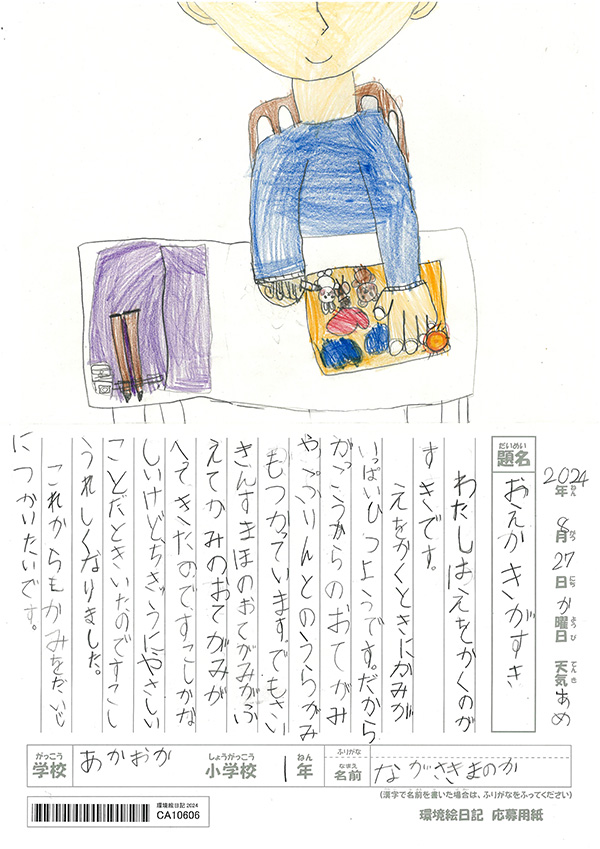 2024年ねん8月がつ27日にちか曜日ようび 天気てんきあめ
題名だいめい おえかきがすき
わたしはえをかくのが
すきです。
えをかくときにかみが
いっぱいひつようです。だから
がっこうからのおてがみ
やぷりんとのうらがみ
もつかっています。でもさい
きんすまほのおてがみがふ
えてかみのおてがみが
へってきたのですこしかな
しいけど、ちきゅうにやさしい
ことだときいたのですこし
うれしくなりました。
これからもかみをだいじ
につかいたいです。
学校がっこう あかおか 小学校しょうがっこう 1年ねん
ふりがな
名前なまえ ながさきまのか
(漢字で名前を書いた場合は、ふりがなをふってください)
環境絵日記2024
CA10606
環境絵日記 応募用紙